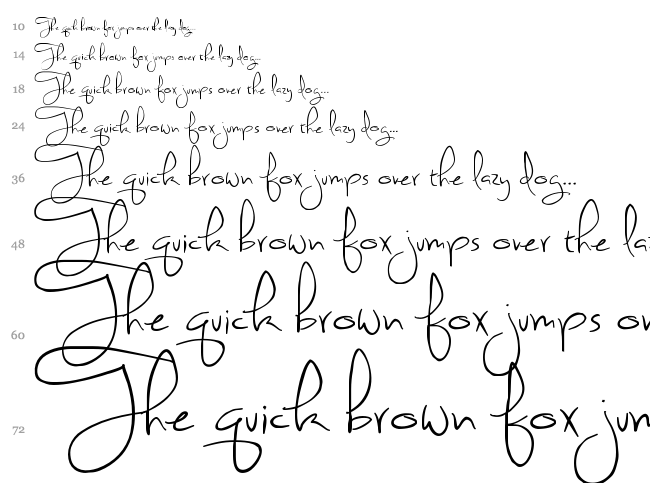 10 The quick brown fox jumps over the lazy dog...
14 The quick brown fox jumps over the lazy dog...
18 The quick brown fox jumps over the lazy dog...
24 The quick brown fox jumps over the lazy dog...
36 The quick brown fox jumps over the lazy dog...
48 The quick brown fox jumps over the la
60 The quick brown fox jumps ov
72 The quick brown fox jum